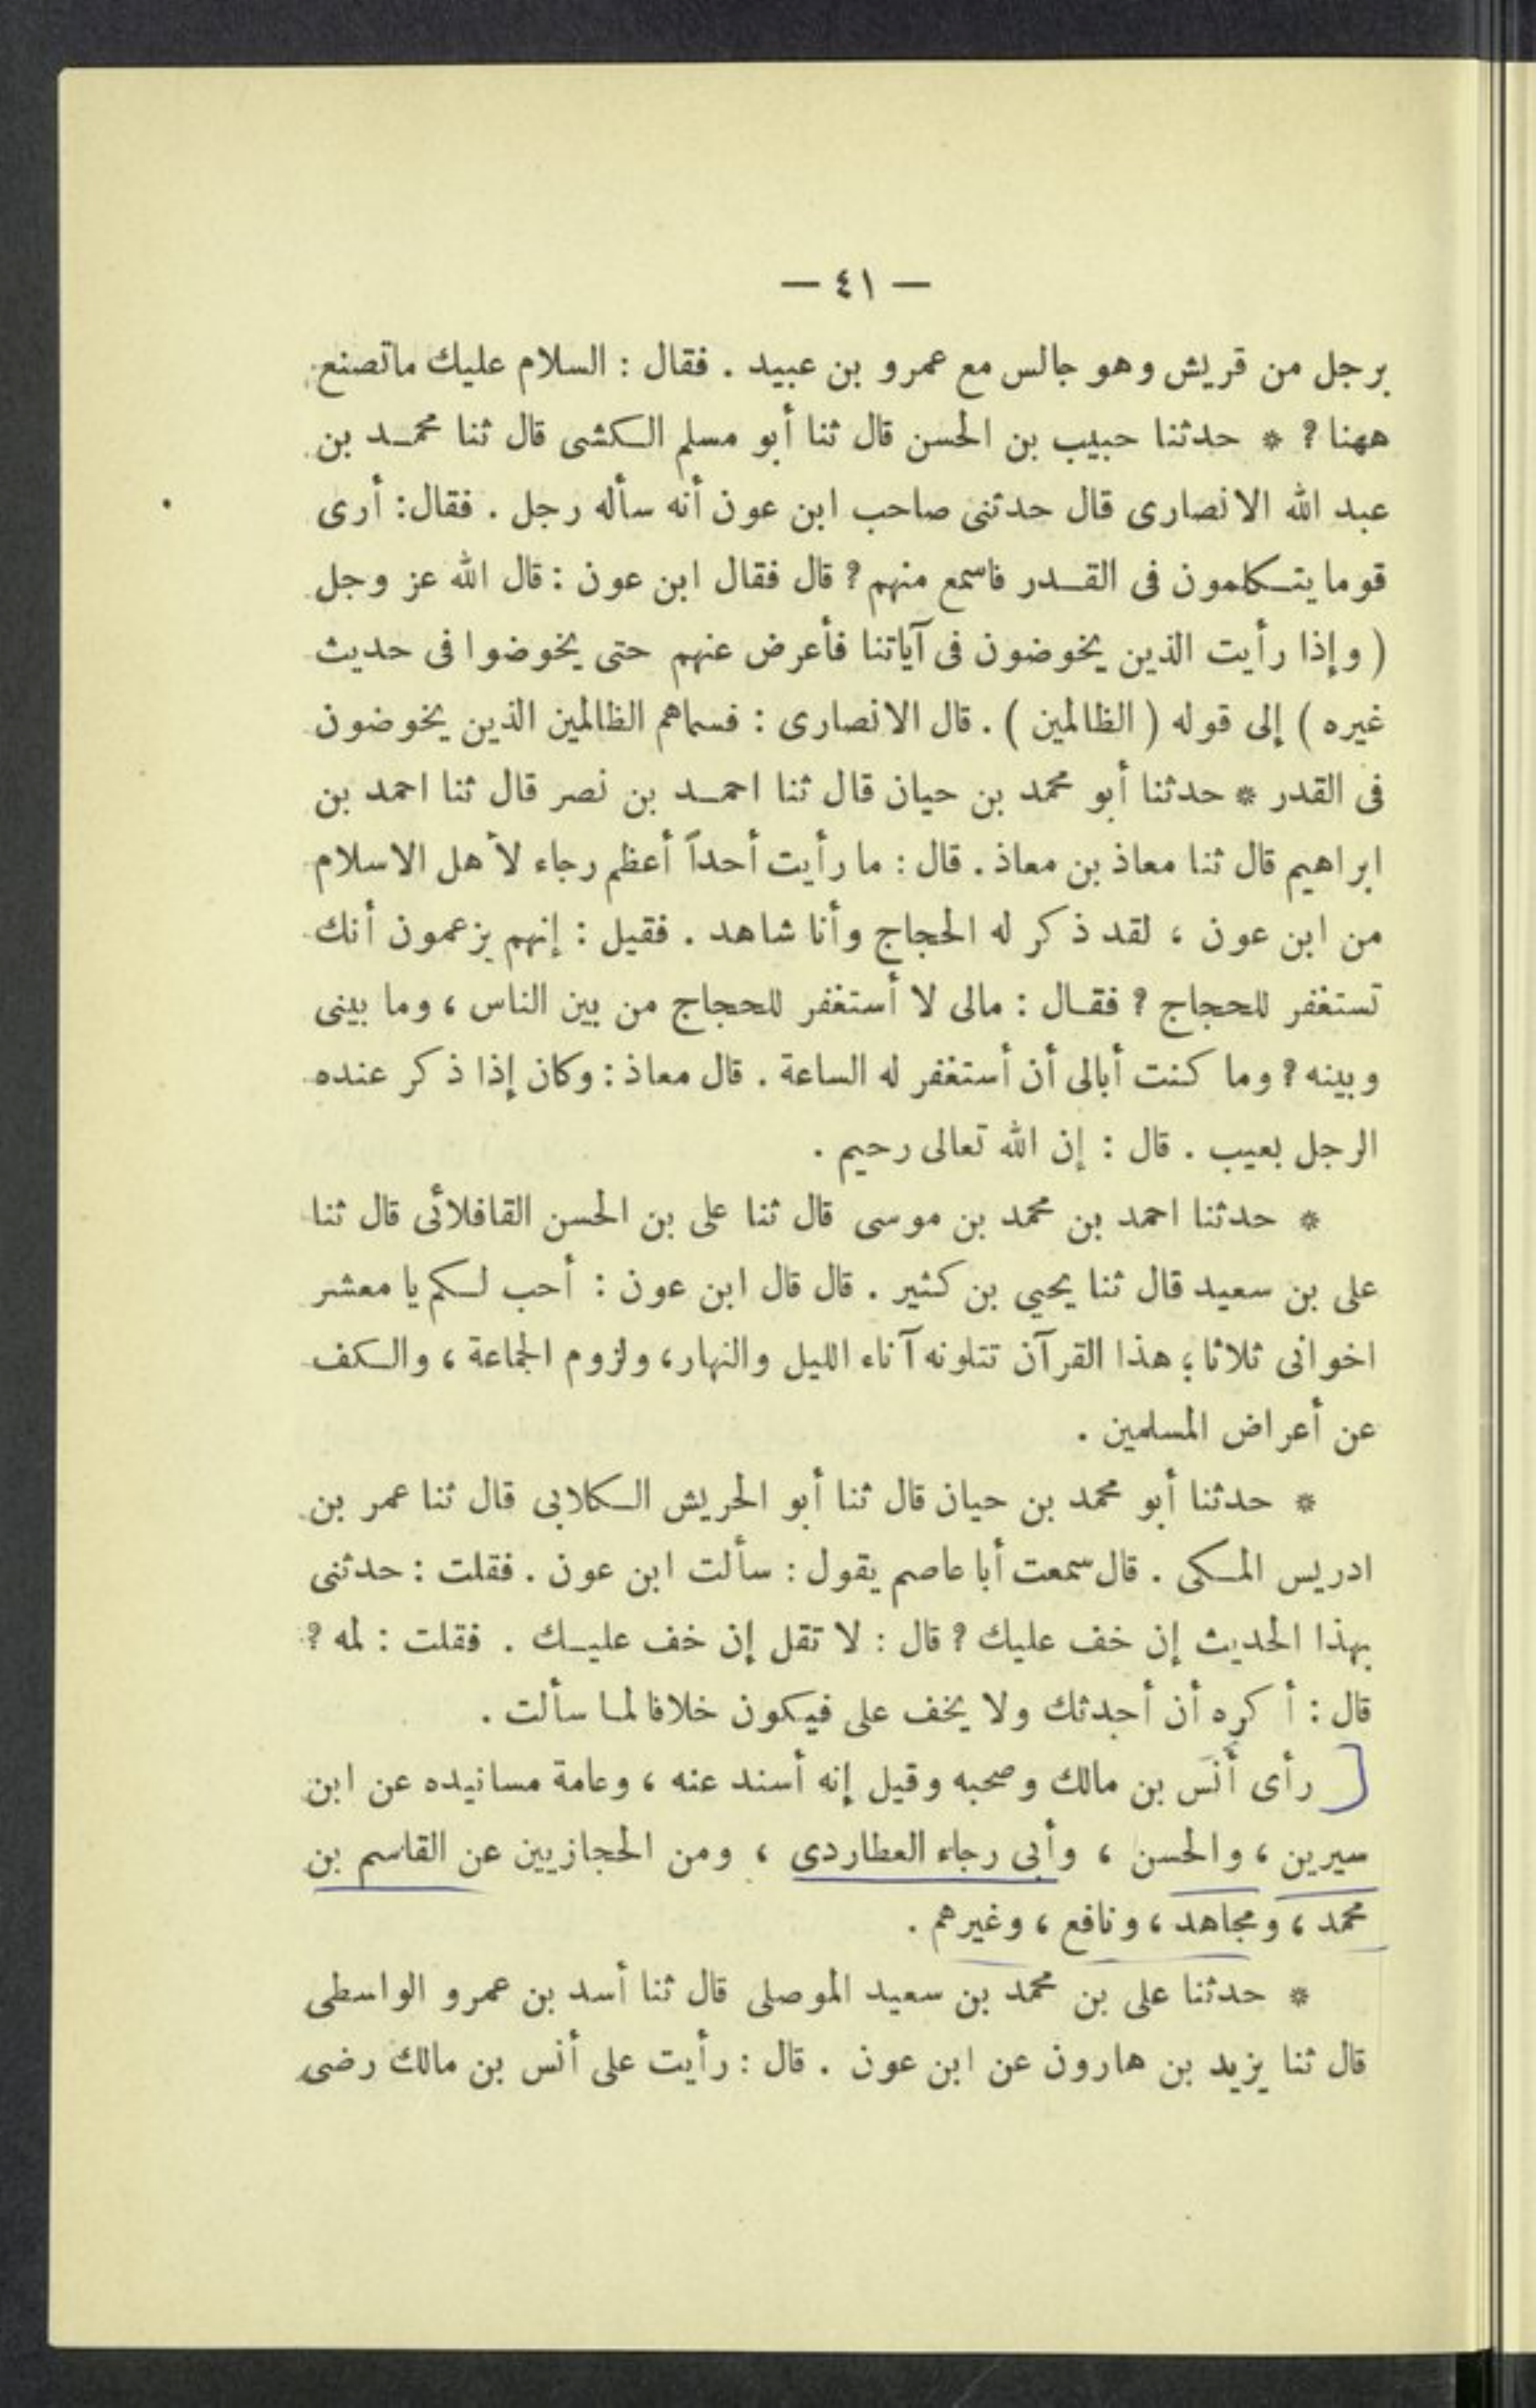 — ٤١ —
برجل من قريش وهو جالس مع عمرو بن عبيد . فقال : السلام عليك ماتصنع
ههنا ? * حدثنا حبيب بن الحسن قال ثنا أبو مسلم الكشى قال ثنا محمد بن
عبد الله الانصارى قال حدثنى صاحب ابن عون أنه سأله رجل . فقال : أرى
قوما يتكلمون فى القدر فاسمع منهم ? قال فقال ابن عون : قال الله عز وجل
( وإذا رأيت الذين يخوضون فى آياتنا فأعرض عنهم حتى يخوضوا فى حديث
غيره ) إلى قوله ( الظالمين ) . قال الانصارى : فسماهم الظالمين الذين يخوضون
فى القدر * حدثنا أبو محمد بن حيان قال ثنا احمد بن نصر قال ثنا احمد بن
ابراهيم قال ثنا معاذ بن معاذ . قال : ما رأيت أحداً أعظم رجاء لأهل الاسلام
من ابن عون ، لقد ذكر له الحجاج وأنا شاهد . فقيل : إنهم يزعمون أنك
تستغفر للحجاج ? فقال : مالى لا أستغفر للحجاج من بين الناس ، وما بينى
وبينه ? وما كنت أبالى أن أستغفر له الساعة . قال معاذ : وكان إذا ذكر عنده
الرجل بعيب . قال : إن الله تعالى رحيم .
* حدثنا احمد بن محمد بن موسى قال ثنا على بن الحسن القافلائى قال ثنا
على بن سعيد قال ثنا يحيي بن كثير . قال قال ابن عون : أحب لكم يا معشر
اخوانى ثلاثا ؛ هذا القرآن تتلونه آناء الليل والنهار ، ولزوم الجماعة ، والكف
عن أعراض المسلمين .
* حدثنا أبو محمد بن حيان قال ثنا أبو الحريش الكلابى قال ثنا عمر بن
ادريس المكى . قال سمعت أبا عاصم يقول : سألت ابن عون . فقلت : حدثنى
بهذا الحديث إن خف عليك ? قال : لا تقل إن خف عليك . فقلت : لمه ?
قال : أكره أن أحدثك ولا يخف على فيكون خلافا لما سألت .
رأى أنس بن مالك وصحبه وقيل إنه أسند عنه ، وعامة مسانيده عن ابن
سيرين ، والحسن ، وأبى رجاء العطاردى ، ومن الحجازيين عن القاسم بن
محمد ، ومجاهد ، ونافع ، وغيرهم .
* حدثنا على بن محمد بن سعيد الموصلى قال ثنا أسد بن عمرو الواسطى
قال ثنا يزيد بن هارون عن ابن عون . قال : رأيت على أنس بن مالك رضى